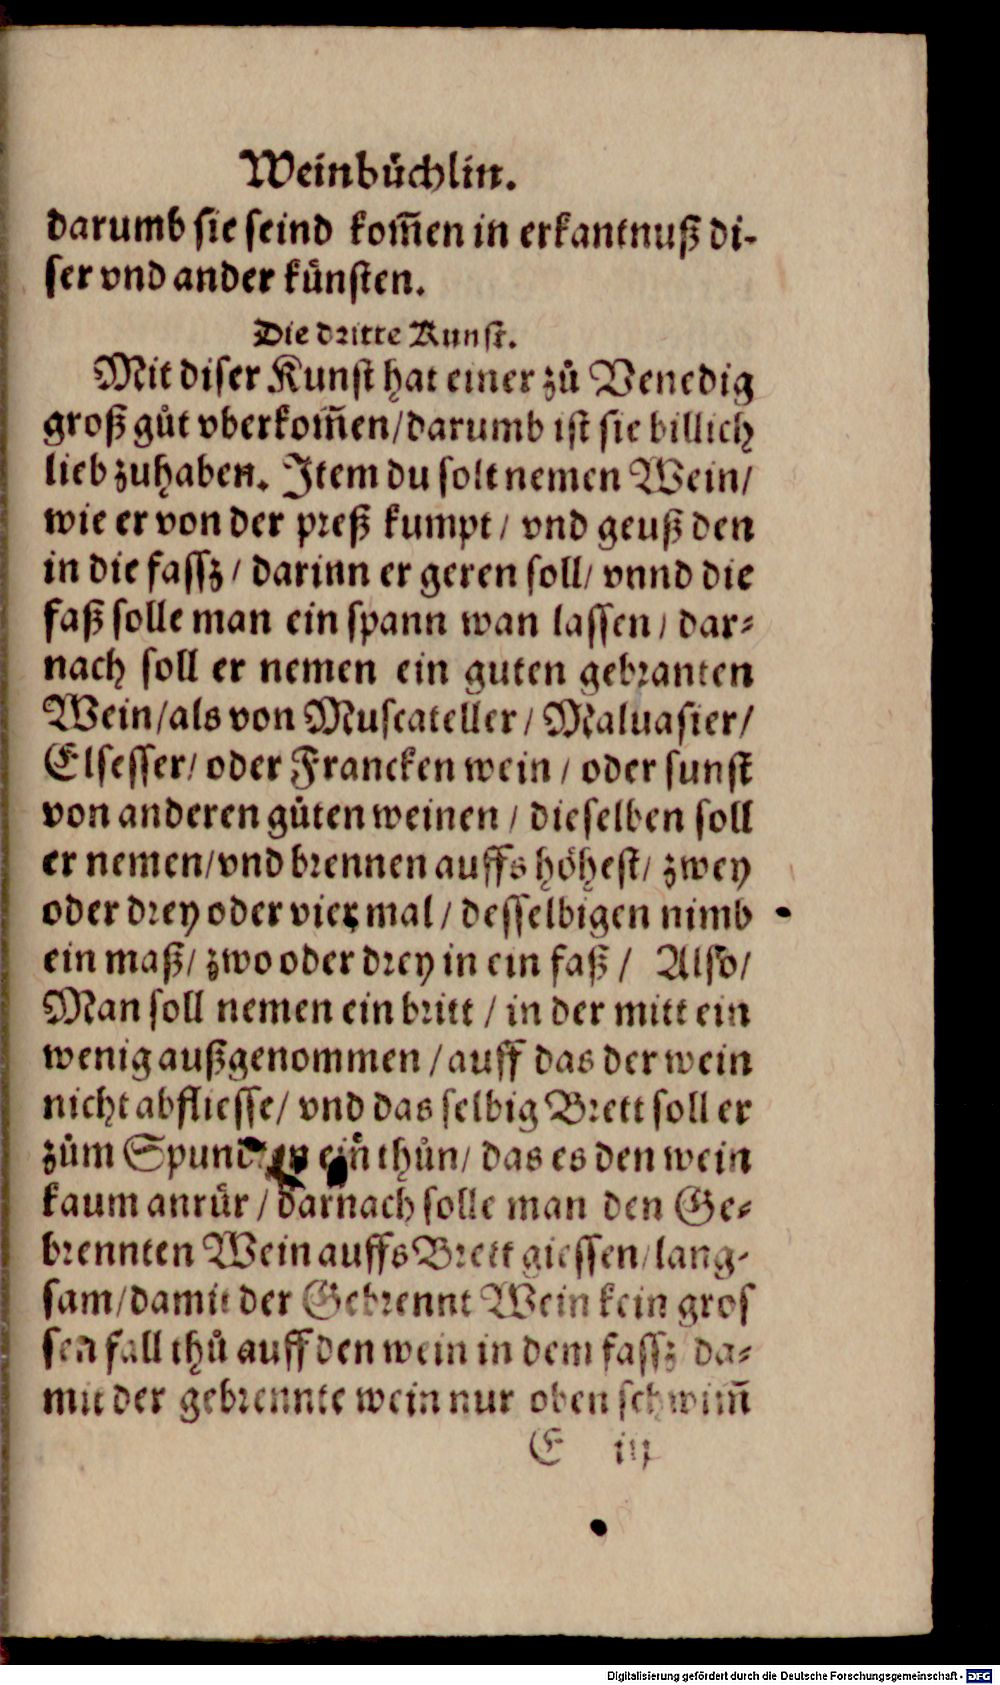 Weinbuͤchlin.
darumb sie seind kom̃en in erkantnuß di-
ser vnd ander kuͤnsten.
Die dritte Kunst.
Mit diser Kunst hat einer zuͦ Venedig
groß guͦt vberkom̃en/darumb ist sie billich
lieb zuhaben. Item du solt nemen Wein/
wie er von der preß kumpt/ vnd geuß den
in die fassz/ darinn er geren soll/ vnnd die
faß solle man ein spann wan lassen/ dar-
nach soll er nemen ein guten gebranten
Wein/als von Muscateller/ Maluasier/
Elsesser/ oder Francken wein/ oder sunst
von anderen guͦten weinen/ dieselben soll
er nemen/vnd brennen auffs hoͤhest/ zwey
oder drey oder vier mal/ desselbigen nimb
ein maß/ zwo oder drey in ein faß/ Also/
Man soll nemen ein britt/ in der mitt ein
wenig außgenommen/auff das der wein
nicht abfliesse/ vnd das selbig Brett soll er
zuͦm Spunden ein thuͦn/ das es den wein
kaum anruͤr/ darnach solle man den Ge-
brennten Wein auffs Brett giessen/lang-
sam/damit der Gebrennt Wein kein gros
sen fall thuͦ auff den wein in dem fassz da-
mit der gebrennte wein nur oben schwim̃
E iij
Digitalisierung gefördert durch die Deutsche Forschungsgemeinschaft - DFG